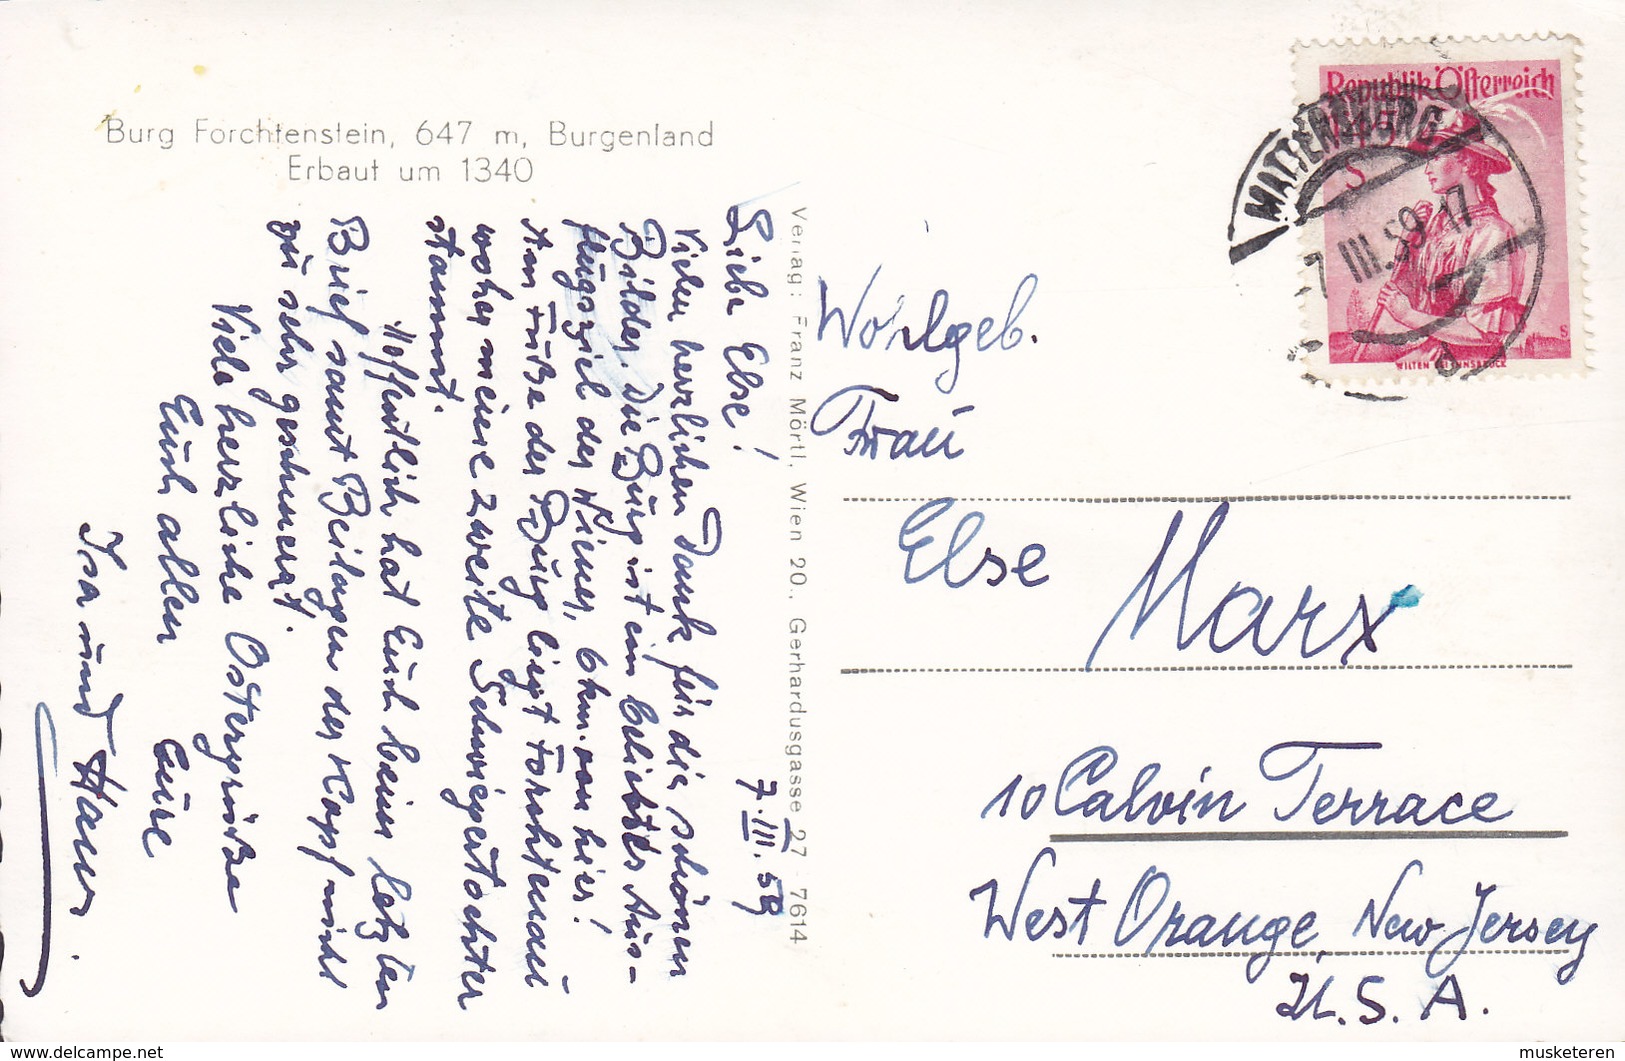 Burg Forchtenstein, 647 m, Burgenland
Erbaut um 1340
7.III.59
Liebe Else!
Vielen herzlichen Dank für die schönen
Bilder. Die Burg ist ein beliebtes Aus-
flugsziel der Wiener, 6 km. von hier!
Am Fuße der Burg liegt Forchtenau
woher meine zweite Schwiegertochter
stammt.
Hoffentlich hat Euch beim letzten
Brief samt Beilagen der Kopf nicht
zu sehr geschmerzt.
Viele herzliche Ostergrüße
Euch allen Eure
Isa und Hans.
Verlag: Franz Mörtl, Wien 20., Gerhardusgasse 27 · 7614
Republik Österreich
S
WILTEN BEI INNSBRUCK
S
MATTERSBURG
-7.III.59.17
d
Wohlgeb.
Frau
Else Marx
10 Calvin Terrace
West Orange, New Jersey
U.S.A.
musketeren